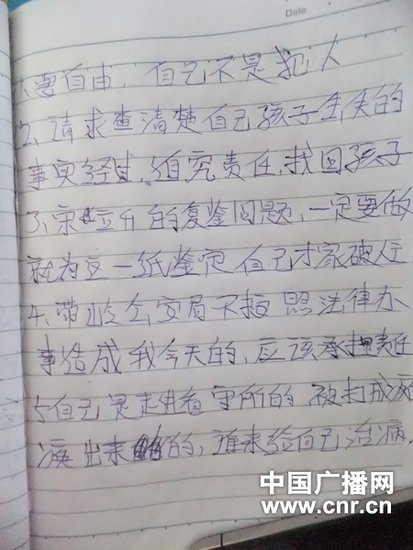 Date
1、要自由，自己不是犯人
2、请求查清楚自己孩子丢失的
事实经过，追究责任，找回孩子
3、的复鉴问题，一定要做
就为这一纸鉴定自己才家破人亡
4、带岭公安局不按照法律办
事造成我今天的，应该承担责任
5自己是走进看守所的被打成
病出来的，谁来给自己治病
中国广播网
www.cnr.cn